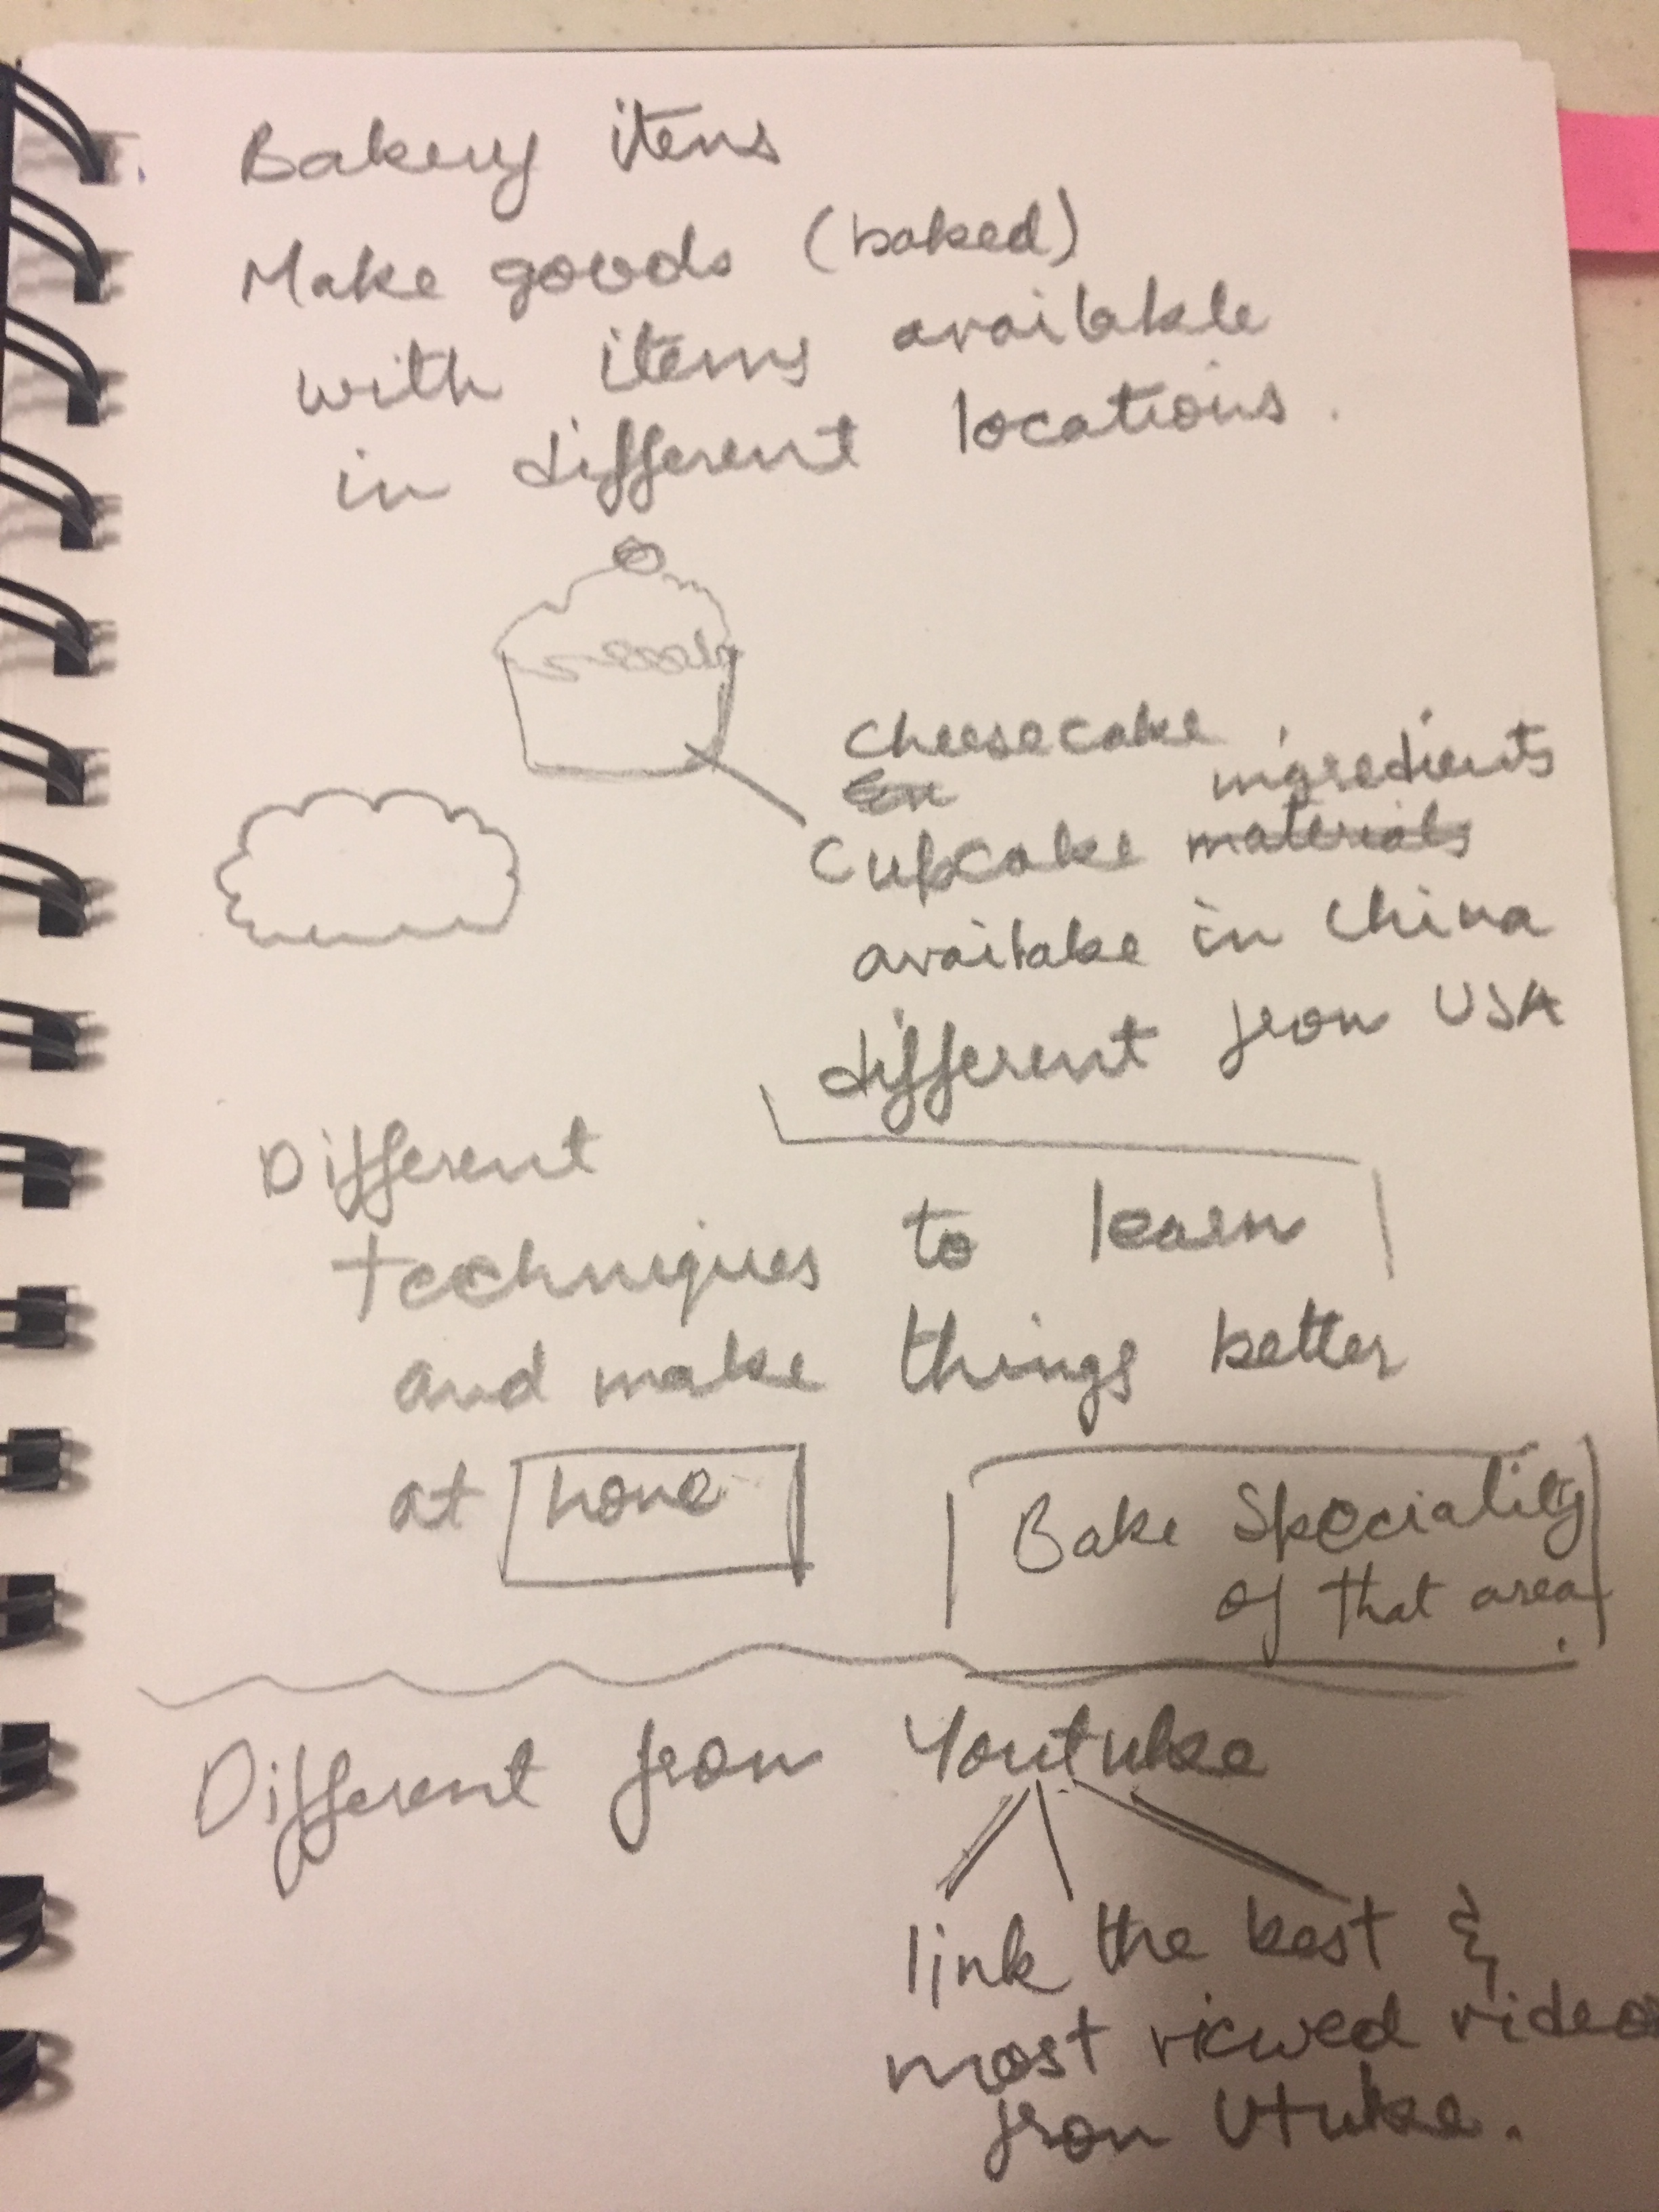 Bakery items
Make goods (baked)
with items available
in different locations.
Cheesecake
ingredients
Cupcake materials
available in China
different from USA
Different
techniques to learn
and make things better
at home
Bake Speciality
of that area
Different from Youtube
link the best &
most viewed video
from Utube.